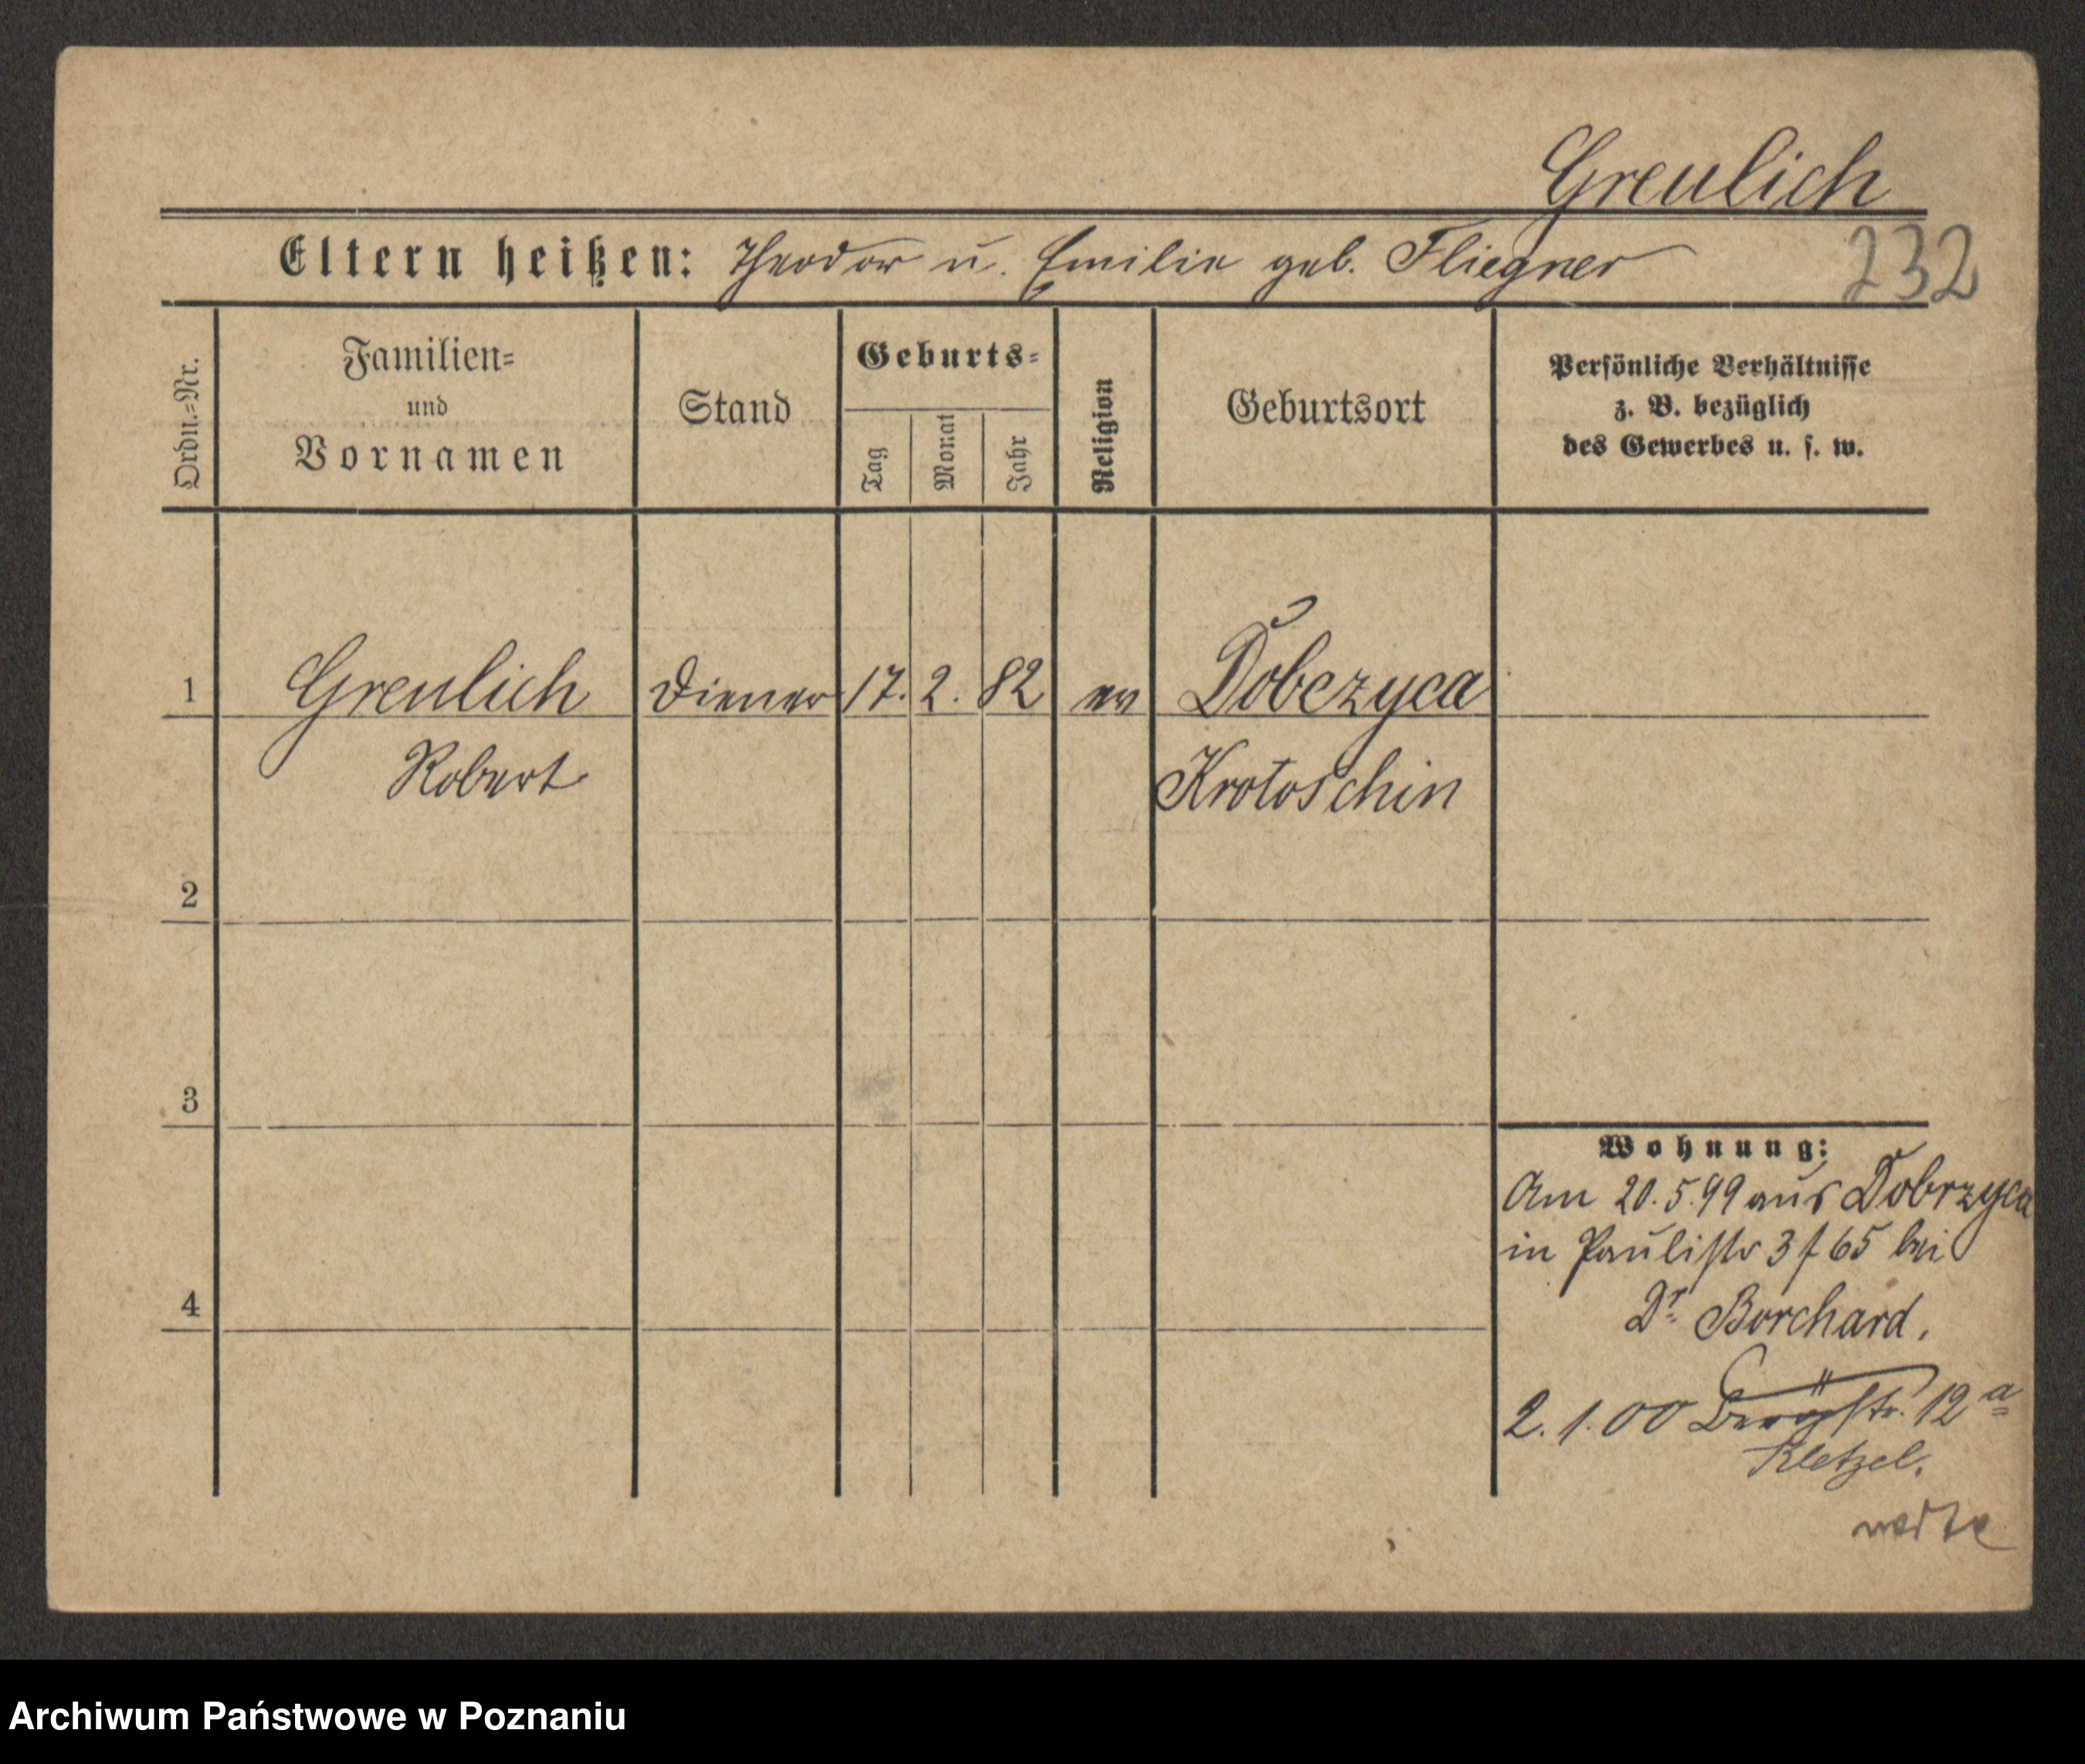 Greulich
Eltern heißen: Theodor u. Emilie geb. Fliegner
232
Ordn.=Nr.
Familien=
und
Vornamen
Stand
Geburts=
Tag
Monat
Jahr
Religion
Geburtsort
Persönliche Verhältnisse
z. B. bezüglich
des Gewerbes u. s. w.
1 Greulich Diener 17. 2. 82 ev Dobczyca
Robert Krotoschin
2
3
Wohnung:
Am 20.5.99 aus Dobrzyca
in Paulistr 3 f 65 bei
4
Dr Borchard.
2. 1. 00 Bergstr. 12a
Kletzel.
Archiwum Państwowe w Poznaniu